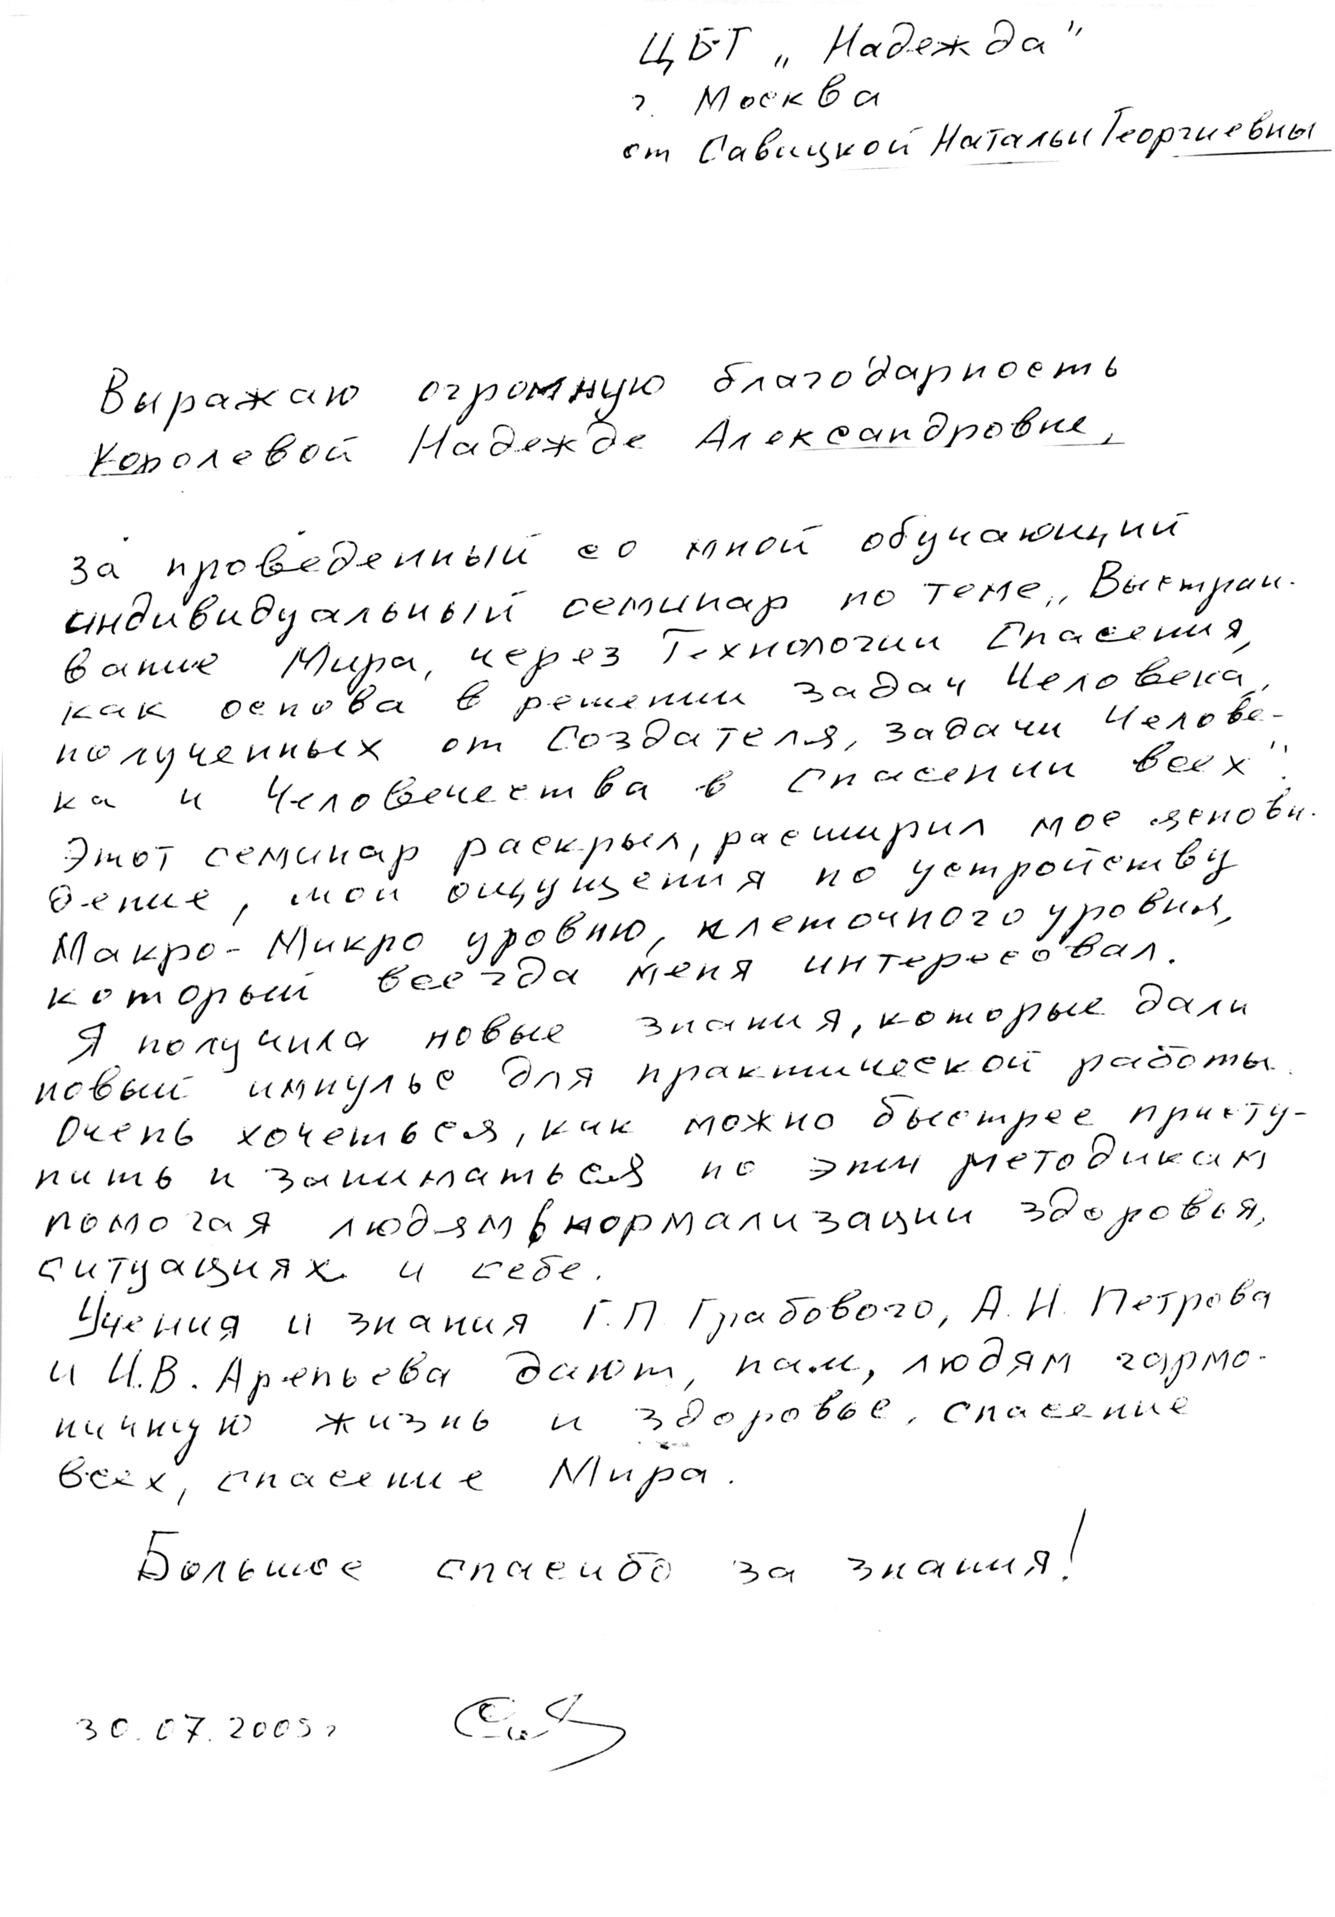 ЦБТ „Надежда"
г. Москва
от Савицкой Натальи Георгиевны
Выражаю огромную благодарность
Королевой Надежде Александровне,
за проведенный со мной обучающий
индивидуальный семинар по теме „Выстраи-
вание Мира, через Технологии Спасения,
как основа в решении задач Человека,
полученных от Создателя, задачи Челове-
ка и Человечества в Спасении всех".
Этот семинар раскрыл, расширил мое яснови-
дение, мои ощущения по устройству
Макро-Микро уровню, клеточного уровня,
который всегда меня интересовал.
Я получила новые знания, которые дали
новый импульс для практической работы.
Очень хочеться, как можно быстрее присту-
пить и заниматься по этим методикам
помогая людям в нормализации здоровья,
ситуациях и себе.
Учения и знания Г.П. Грабового, А.Н. Петрова
и И.В. Арепьева дают, нам, людям гармо-
ничную жизнь и здоровье, спасение
всех, спасение Мира.
Большое спасибо за знания!
30.07.2005г